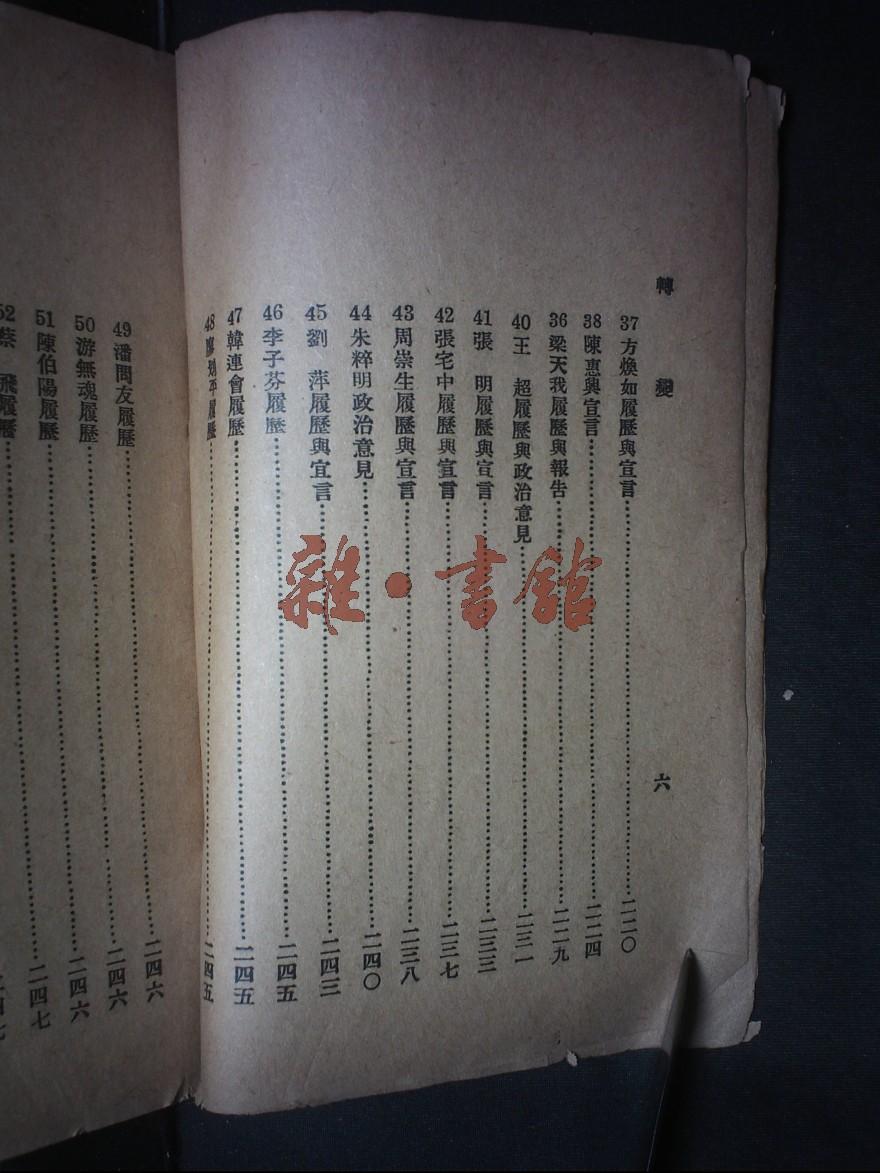 轉變
六
37 方煥如履歷與宣言……二二〇
38 陳惠興宣言……二二四
36 梁天我履歷與報告……二二九
40 王 超履歷與政治意見……二三一
41 張 明履歷與宣言……二三三
42 張宅中履歷與宣言……二三七
43 周崇生履歷與宣言……二三八
44 朱粹明政治意見……二四〇
45 劉 萍履歷與宣言……二四三
46 李子芬履歷……二四五
47 韓連會履歷……二四五
48 廖 平履歷……二四五
49 潘問友履歷……二四六
50 游無魂履歷……二四六
51 陳伯陽履歷……二四七
52 蔡 飛履歷……二四七
雜·書館